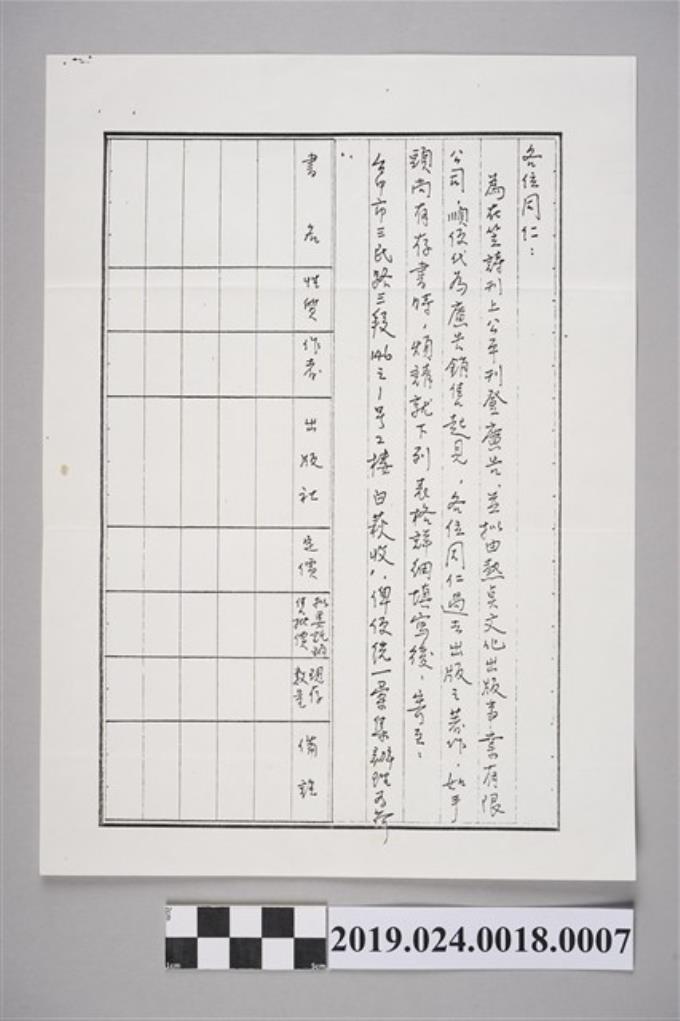 各位同仁：
為在笠詩刊上公平刊登廣告，並擬由熱点文化出版事業有限
公司，順便代為廣告銷售起見，各位同仁過去出版之著作，如手
頭尚有存書時，煩請就下列表格詳細填寫後，寄至：
台中市三民路三段146之1号2樓 白萩收，俾便統一彙集辦理為荷
書名
性質
作者
出版社
定價
擬委託
售批價
現存
數量
備註
2019.024.0018.0007